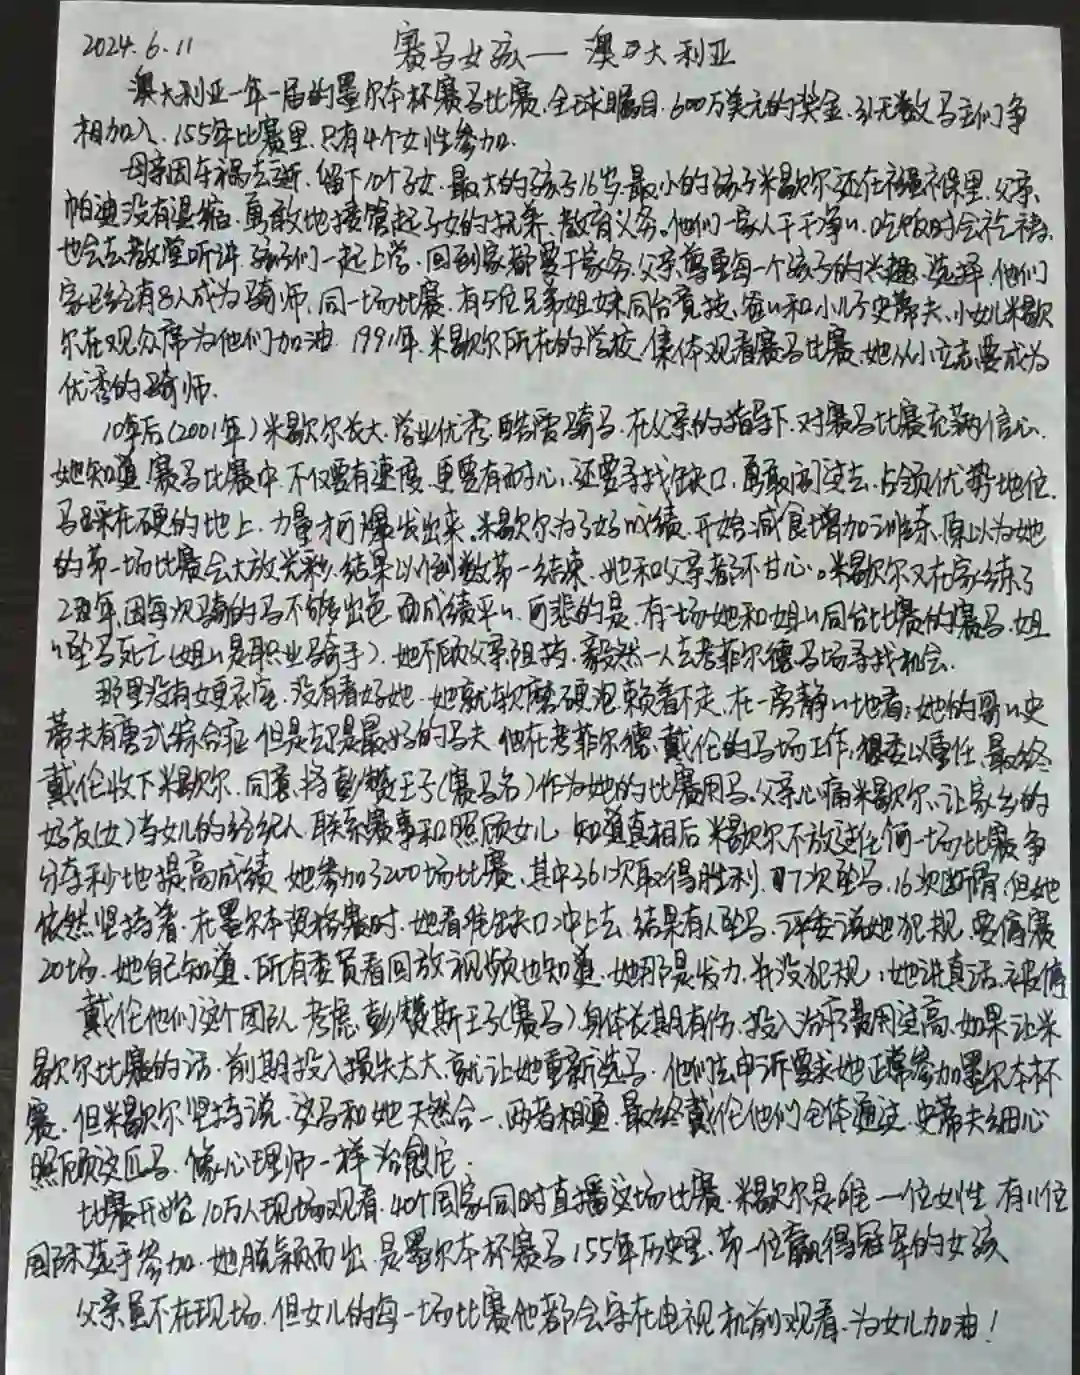 2024.6.11 赛马女孩—澳大利亚
澳大利亚一年一届的墨尔本杯赛马比赛,全球瞩目.600万美元的奖金,引无数马主们争
相加入.155年比赛里,只有4个女性参加.
母亲因车祸去逝.留下10个子女.最大的孩子16岁,最小的孩子米歇尔还在襁褓里.父亲
帕迪没有退缩,勇敢地接管起子女的抚养、教育义务。他们一家人干干净〃,吃饭时会祈祷,
也会去教堂听讲.孩子们一起上学,回到家都要干家务.父亲尊重每一个孩子的兴趣、选择.他们
家已经有8人成为骑师.同一场比赛,有5位兄弟姐妹同台竞技.爸〃和小儿子史蒂夫、小女儿米歇
尔在观众席为他们加油.1991年,米歇尔所在的学校,集体观看赛马比赛.她从小立志要成为
优秀的骑师.
10年后(2001年)米歇尔长大.学业优秀,酷爱骑马.在父亲的指导下,对赛马比赛充满信心.
她知道,赛马比赛中,不仅要有速度,更要有耐心,还要寻找缺口,勇敢闯过去,占领优势地位.
马踩在硬的地上,力量才可爆发出来。米歇尔为了好成绩,开始减食增加训练,原以为她
的第一场比赛会大放光彩,结果以倒数第一结束.她和父亲都不甘心。米歇尔又在家练了
年,因每次骑的马不够出色,而成绩平〃.可悲的是,有一场她和姐〃同台比赛的赛马,姐
〃坠马死亡(姐〃是职业骑手).她不顾父亲阻挡,毅然一人去考菲尔德马场寻找机会.
那里没有女更衣室,没有看好她.她就软磨硬泡赖着不走,在一旁静〃地看;她的哥〃史
蒂夫有唐式综合症,但是却是最好的马夫.他在考菲尔德、戴伦的马场工作,很委以重任.最终
戴伦收下米歇尔,同意将彭赞王子(赛马名)作为她的比赛用马。父亲心痛米歇尔,让家乡的
好友(女)当女儿的经纪人,联系赛事和照顾女儿.知道真相后,米歇尔不放过任何一场比赛,争
分夺秒地提高成绩.她参加了3200场比赛,其中361次取得胜利,7次坠马,16次断骨,但她
依然坚持着.在墨尔本资格赛时,她看准缺口冲上去,结果有人坠马,评委说她犯规,要停赛
20场.她自己知道,所有委员看回放视频也知道,她那是发力,并没犯规,她讲真话,被停
戴伦他们这个团队,考虑彭赞斯王子(赛马)身体长期有伤,投入治疗费用过高,如果让米
歇尔比赛的话,前期投入损失太大,就让她重新选马.他们去申诉要求她正常参加墨尔本杯
赛.但米歇尔坚持说,这马和她天然合一,两者相通.最终戴伦他们全体通过.史蒂夫细心
照顾这匹马,像心理师一样治愈它.
比赛开始,10万人现场观看,40个国家同时直播这场比赛.米歇尔是唯一一位女性,有11位
国际选手参加.她脱颖而出,是墨尔本杯赛马155年历史里,第一位赢得冠军的女孩
父亲虽不在现场,但女儿的每一场比赛他都会守在电视机前观看,为女儿加油!